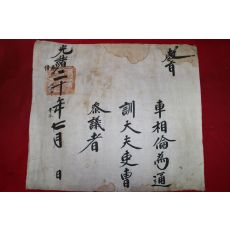 敎旨
車相倫爲通
訓大夫吏曹
參議者
光緖二十年七月 日